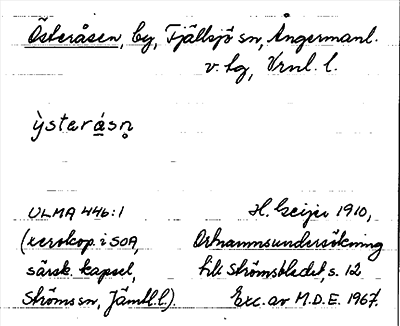 Österåsen, by, Fjällsjö sn, Ångermanl.
v. tg, Vrnl. l.
ỳsterásn̥
ULMA 446:1
(xerokop. i SOA,
särsk. kapsel,
Ströms sn, Jämtl.l.).
H. Geijer 1910,
Ortnamnsundersökning
till Strömsbladet, s. 12
Exc. av M.D.E. 1967.